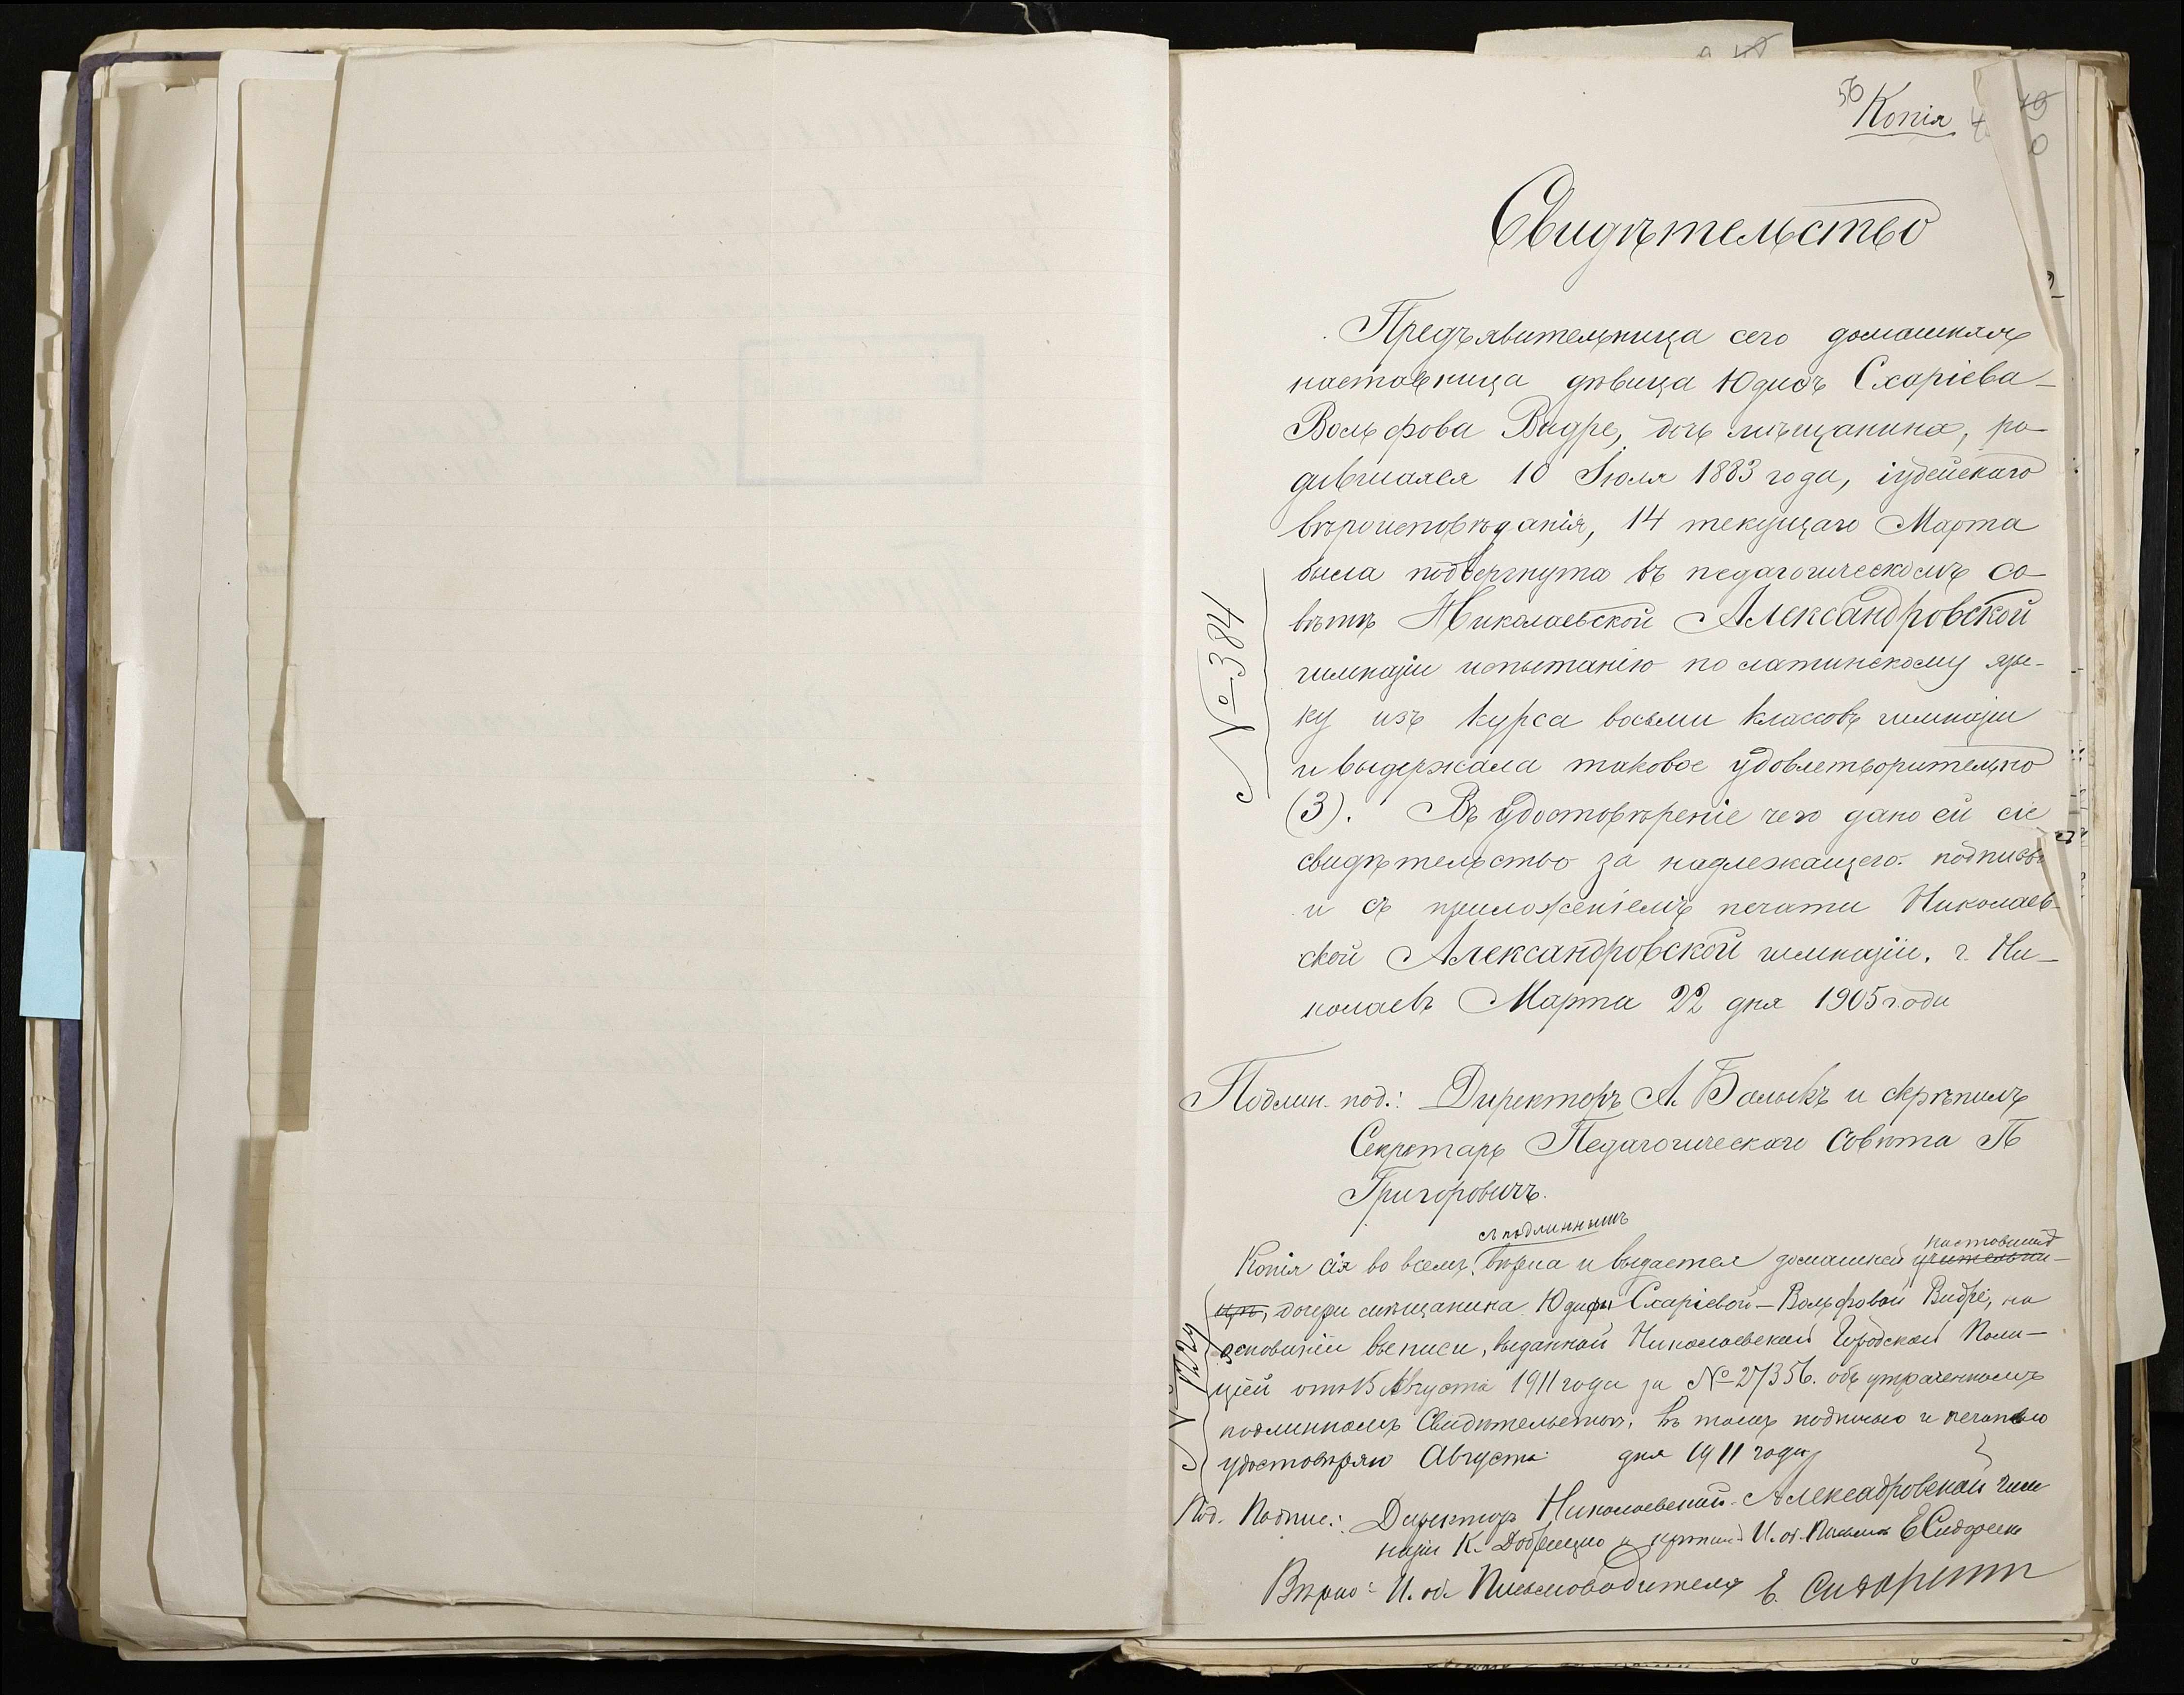 56
Копія
Свидѣтельство
Предъявительница сего домашняя
наставница дѣвица Юдиѳь Схаріева-
Вольфова Видре, дочь мѣщанина, ро-
дившаяся 10 Іюля 1883 года, іудейскаго
вѣроисповѣданія, 14 текущаго Марта
была подвергнута въ педагогическомъ со-
вѣтѣ Николаевской Александровской
гимназіи испытанію по латинскому язы-
ку изъ курса восьми классовъ гимназіи
и выдержала таковое удовлетворительно
(3). Въ удостовѣреніе чего дано ей сіе
свидѣтельство за надлежащего подписью
и съ приложеніемъ печати Николаев-
ской Александровской гимназіи. г. Ни-
колаевъ Марта 22 дня 1905 года
№ 384
Подлин. под.: Директоръ А. Балыкъ и скрѣпилъ
Секретарь Педагогическаго Совѣта П
Григоровичъ.
съ подлиннымъ
Копія сія во всемъ вѣрна и выдается домашней учительни-
наставниц
цѣ, дочери мѣщанина Юдифи Схаріевой-Вольфовой Видре, на
основаніи выписи, выданной Николаевской Городской Поли-
ціей отъ 15 Августа 1911 года за № 27356. объ утраченномъ
подлинномъ Свидѣтельствѣ. въ томъ подписью и печатью
удостовѣряю Августа дня 1911 года
№ 1224
Под. Подпис.: Директоръ Николаевской Александровской гим
назіи К. И. об. Е Сидорен
Вѣрно: И. об. Письмоводителя Е. Сидоренко